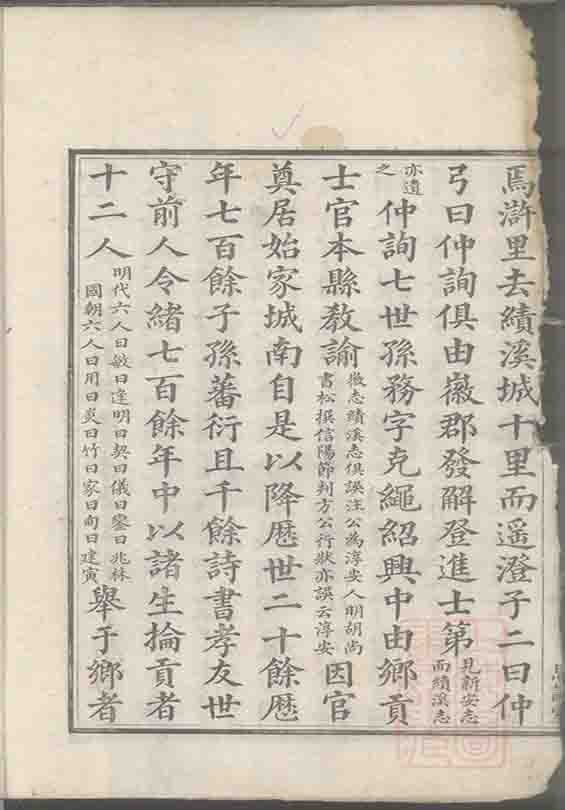 焉滸里去績溪城十里而遥澄子二曰仲
弓曰仲詢俱由徽郡發解登進士第見新安志而績溪志
亦遺之仲詢七世孫務字克繩紹興中由鄉貢
士官本縣敎諭徽志績溪志俱誤注公為淳安人明胡尚書松撰信陽節判方公行狀亦誤云淳安因官
奠居始家城南自是以降歷世二十餘歷
年七百餘子孫蕃衍且千餘詩書孝友世
守前人令緒七百餘年中以諸生掄貢者
十二人明代六人曰敏曰逹明曰契曰儀曰鑒曰兆林國朝六人曰用曰炎曰竹曰家曰甸曰建寅舉于鄉者